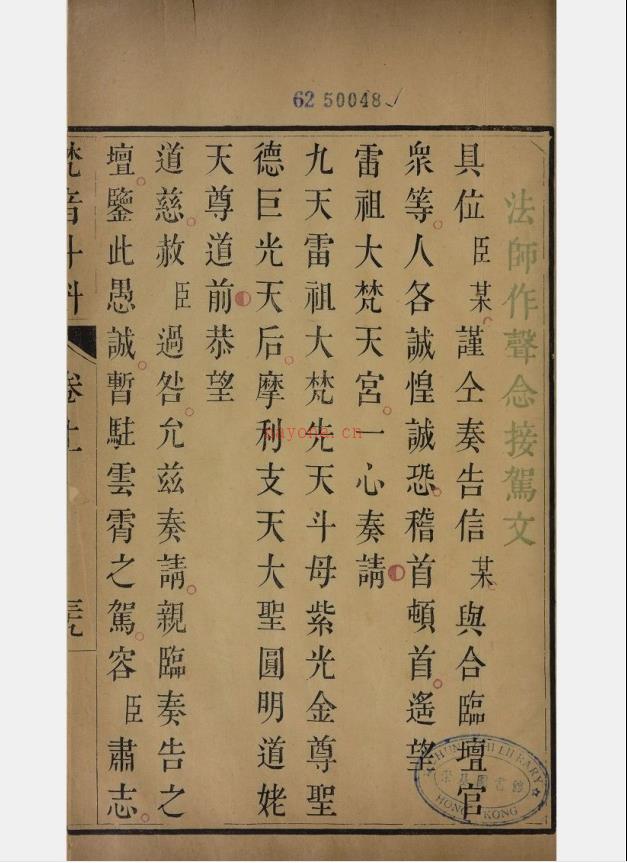 62 50048
法師作聲念接駕文
具位臣某謹仝奏告信某與合臨壇官
衆等人各誠惶誠恐稽首頓首遙望
雷祖大梵天宮一心奏請
九天雷祖大梵先天斗母紫光金尊聖
德巨光天后摩利支天大聖圓明道姥
天尊道前恭望
道慈赦臣過咎允茲奏請親臨奏告之
壇鑒此愚誠暫駐雲霄之駕容臣肅志
梵音斗科 卷上
HONG KONG